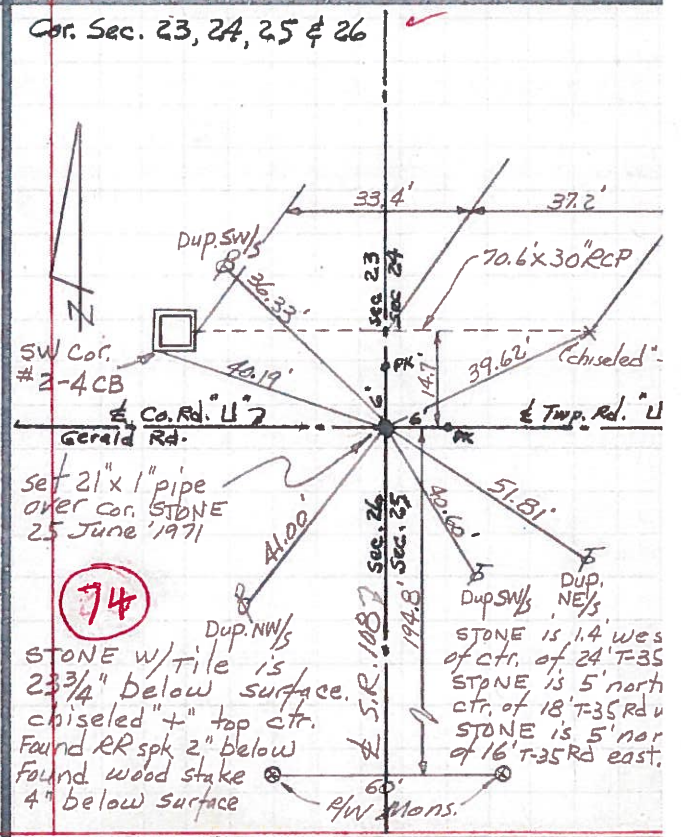 Cor. Sec. 23, 24, 25 & 26
33.4'
37.2'
Dup. SW/s
36.33'
Sec 23
Sec 24
70.6' x 30" RCP
N
SW Cor.
#2-4 CB
40.19'
PK
14.7'
39.62'
(chiseled "-
6'
6'
℄ Co. Rd. "U"
Gerald Rd.
PK
℄ Twp. Rd. "U
set 21" x 1" pipe
over cor. STONE
25 June '1971
41.00'
Sec. 26
Sec. 25
40.60'
51.81'
74
Dup. NW/s
Dup SW/s
Dup.
NE/s
℄ S.R. 108
194.8'
STONE W/Tile is
23 3/4" below surface.
chiseled "+" top ctr.
Found RR spk 2" below
Found wood stake
4" below surface
STONE is 1.4' wes
of ctr. of 24' T-35
STONE is 5' north
ctr. of 18' T-35 Rd w
STONE is 5' nor
of 16' T-35 Rd east.
60'
R/W Mons.